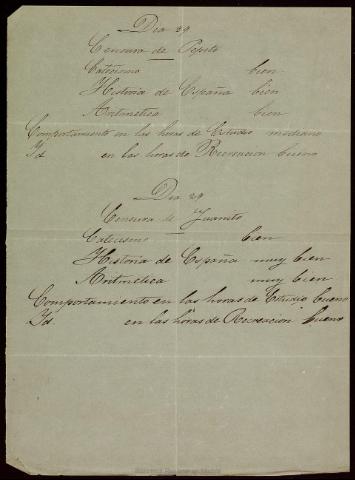 Dia 29
Censura de Pepito
Catecismo bien
Historia de España bien
Aritmetica bien
Comportamiento en las horas de Estudio mediano
Id. en las horas de Recreacion bueno
Dia 29
Censura de Juanito
Catecismo bien
Historia de España muy bien
Aritmetica muy bien
Comportamiento en las horas de Estudio bueno
Id. en las horas de Recreacion bueno